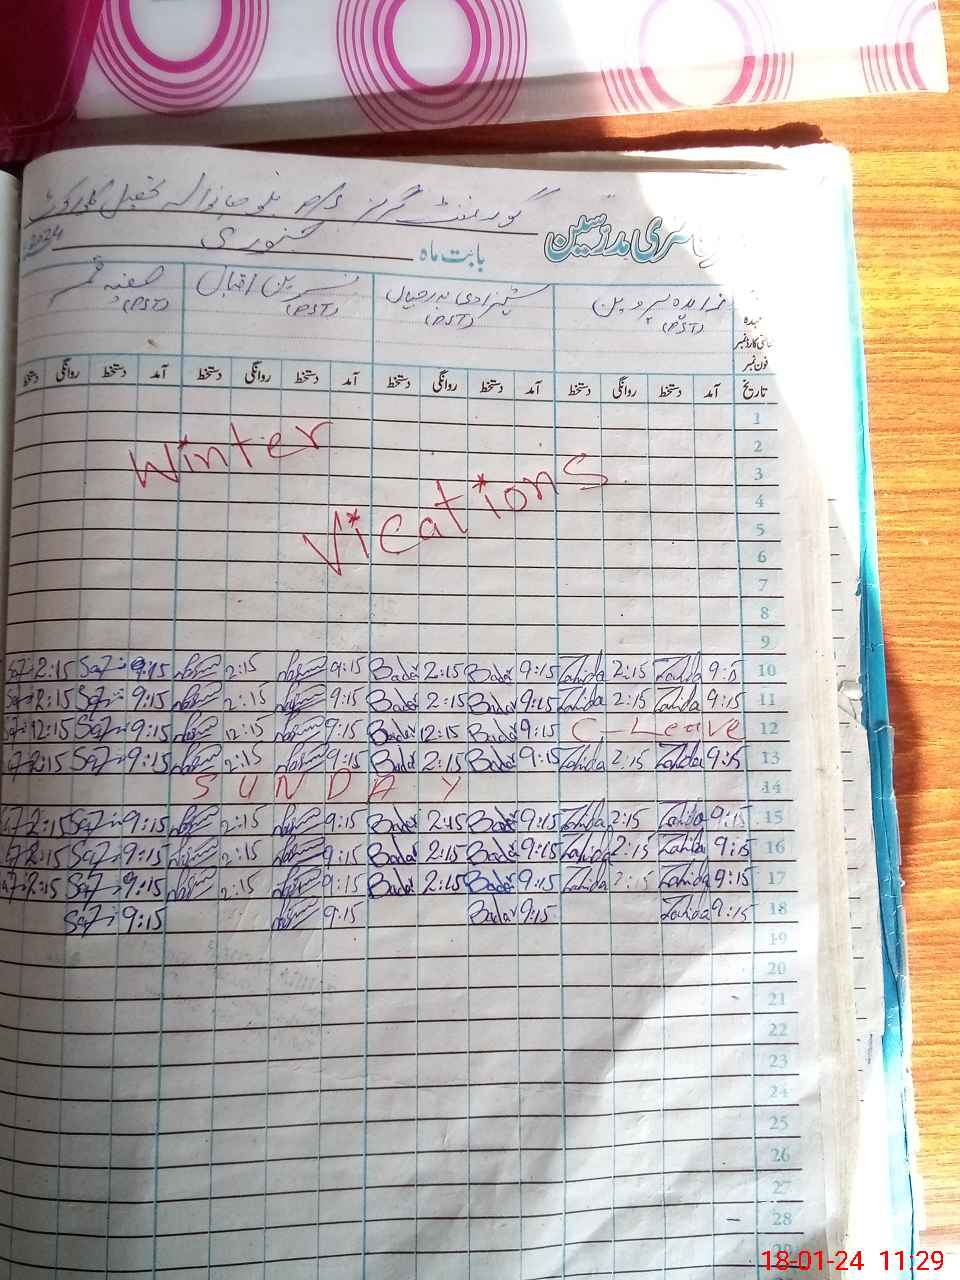 گورنمنٹ گرلز
حاضری مدرسین
بابت ماہ جنوری 2024
زاہدہ پروین شہزادی بدر جمال نسرین اقبال صفیہ قمر
(PST) (PST) (PST) (PST)
عہدہ
شناختی کارڈ نمبر
فون نمبر
تاریخ آمد دستخط روانگی دستخط آمد دستخط روانگی دستخط آمد دستخط روانگی دستخط آمد دستخط روانگی دستخط
1
Winter 2
Vications 3
4
5
6
7
8
9
2:15 Saf 9:15 2:15 9:15 Badar 2:15 Badar 9:15 Zahida 2:15 Zahida 9:15 10
2:15 Saf 9:15 2:15 9:15 Badar 2:15 Badar 9:15 Zahida 2:15 Zahida 9:15 11
12:15 Saf 9:15 12:15 9:15 Badar 12:15 Badar 9:15 C-Leave 12
2:15 Saf 9:15 2:15 9:15 Badar 2:15 Badar 9:15 Zahida 2:15 Zahida 9:15 13
SUNDAY 14
2:15 Saf 9:15 2:15 9:15 Badar 2:15 Badar 9:15 Zahida 2:15 Zahida 9:15 15
2:15 Saf 9:15 2:15 9:15 Badar 2:15 Badar 9:15 Zahida 2:15 Zahida 9:15 16
2:15 Saf 9:15 2:15 9:15 Badar 2:15 Badar 9:15 Zahida 2:15 Zahida 9:15 17
Saf 9:15 9:15 Badar 9:15 Zahida 9:15 18
19
20
21
22
23
24
25
26
27
28
29
18-01-24 11:29